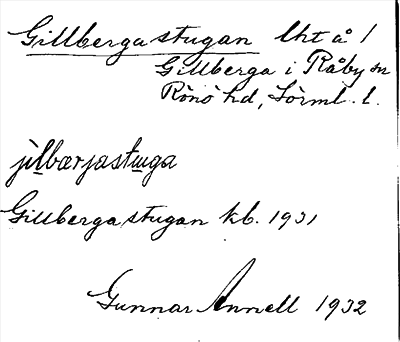 Gillbergastugan lht å 1
Gillberga i Råby sn
Rönö hd, Sörml. l.
jìlbærjastuga
Gillbergastugan kb. 1931
Gunnar Annell 1932